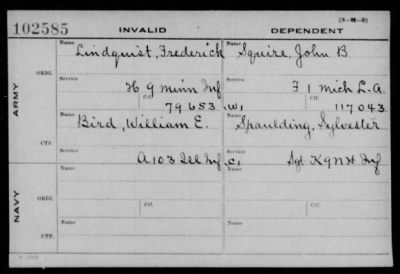 (3-M-3)
102585 INVALID DEPENDENT
Name Name
Lindquist, Frederick Squire, John B
ORIG. Service Service
H 9 Minn Inf F 1 Mich L.A.
Ctf. Ctf.
79653 W1 117043
ARMY
Name Name
Bird, William E. Spaulding, Sylvester
CTF. Service Service
A 103 Ill Inf C1 Sgt K 9 N H Inf
Name Name
ORIG. Service Service
Ctf. Ctf.
NAVY
Name Name
CTF. Service Service